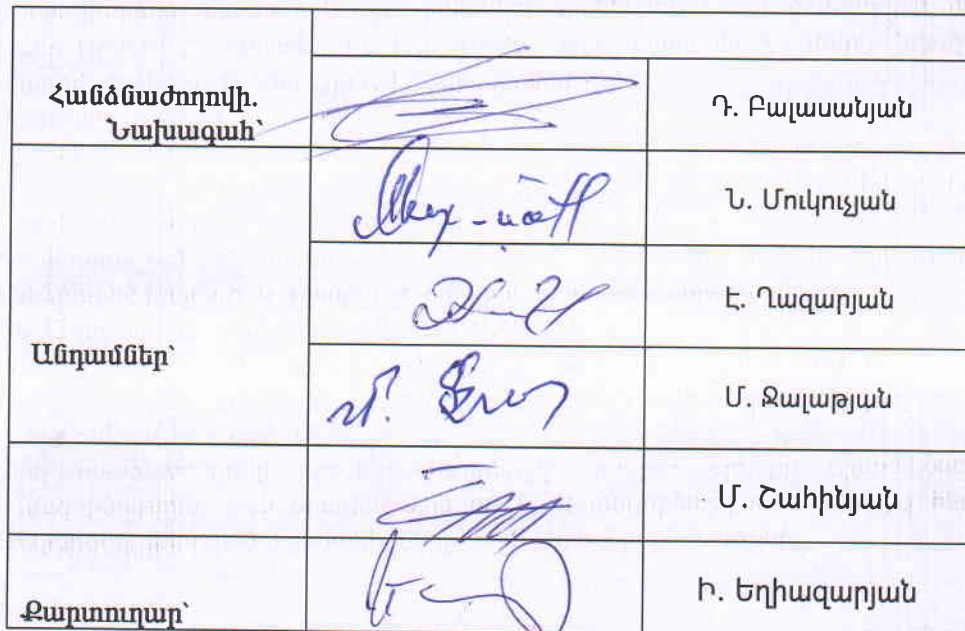 Հանձնաժողովի.
Նախագահ՝
Դ. Բալասանյան
Ն. Մուկուչյան
Է. Ղազարյան
Անդամներ՝
Մ. Ջալաթյան
Մ. Շահինյան
Քարտուղար՝
Ի. Եղիազարյան